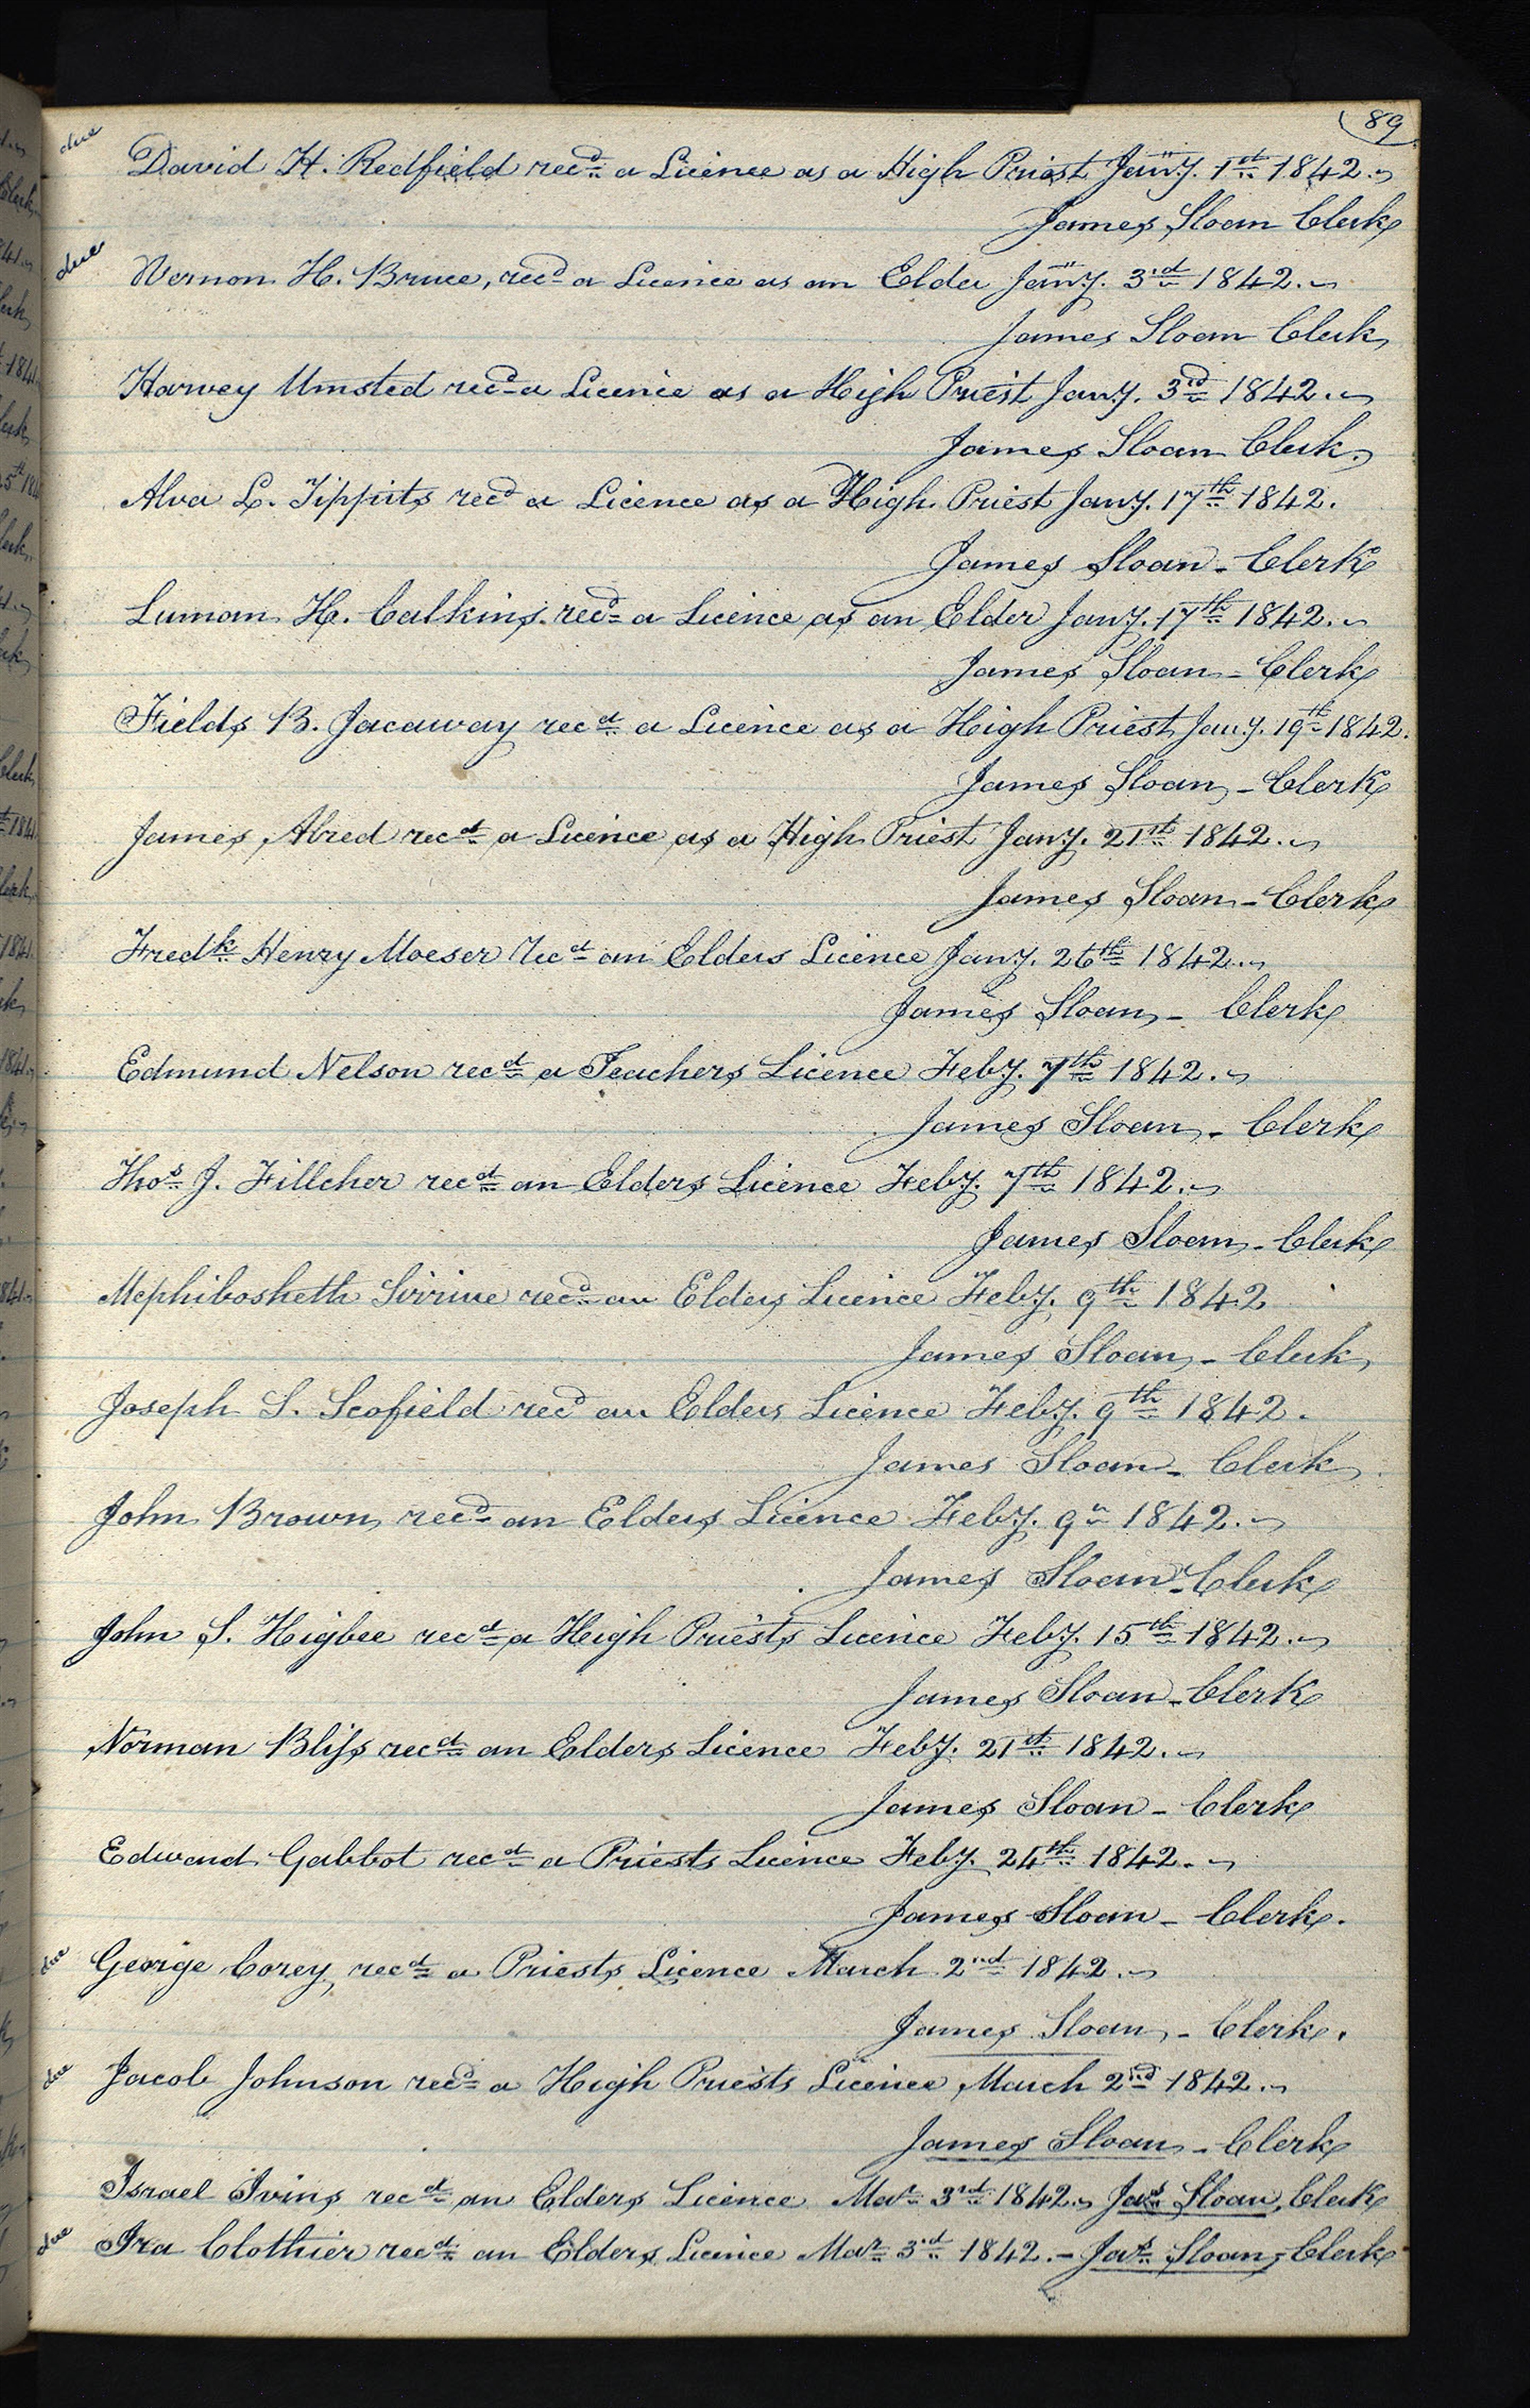 89
due David H. Redfield recd. a Licence as a High Priest Jany. 1st. 1842.
James Sloan Clerk
due Vernon H. Bruce, recd. a Licence as an Elder Jany. 3rd. 1842.
James Sloan Clerk
Harvey Umsted recd. a Licence as a High Priest Jany. 3rd. 1842.
James Sloan Clerk.
Alva L. Tippits recd. a Licence as a High Priest Jany. 17th. 1842.
James Sloan - Clerk
Luman H. Calkins. recd. a Licence as an Elder Jany. 17th. 1842.
James Sloan - Clerk
Fields B. Jacaway recd. a Licence as a High Priest Jany. 19th. 1842.
James Sloan - Clerk
James Alred recd. a Licence as a High Priest Jany. 21st. 1842.
James Sloan - Clerk
Fredk. Henry Moeser Recd. an Elders Licence Jany. 26th. 1842.
James Sloan - Clerk
Edmund Nelson recd. a Teachers Licence Feby. 7th. 1842.
James Sloan - Clerk
Thos. J. Fillcher recd. an Elders Licence Feby. 7th. 1842.
James Sloan - Clerk
Mephibosheth Sirrine recd. an Elders Licence Feby. 9th. 1842
James Sloan - Clerk
Joseph S. Scofield recd. an Elders Licence Feby. 9th. 1842.
James Sloan - Clerk
John Brown recd. an Elders Licence Feby. 9th. 1842.
James Sloan - Clerk
John S. Higbee recd. a High Priests Licence Feby. 15th. 1842.
James Sloan - Clerk
Norman Bliss recd. an Elders Licence Feby. 21st. 1842.
James Sloan - Clerk
Edward Gabbot recd. a Priests Licence Feby. 24th. 1842.
James Sloan - Clerk.
due George Corey, recd. a Priests Licence March 2nd. 1842.
James Sloan - Clerk.
due Jacob Johnson recd. a High Priests Licence March 2nd. 1842.
James Sloan - Clerk
Israel Ivins recd. an Elders Licence Mar. 3rd. 1842. Jas. Sloan, Clerk
due Ira Clothier recd. an Elders Licence Mar. 3rd. 1842. - Jas. Sloan, Clerk